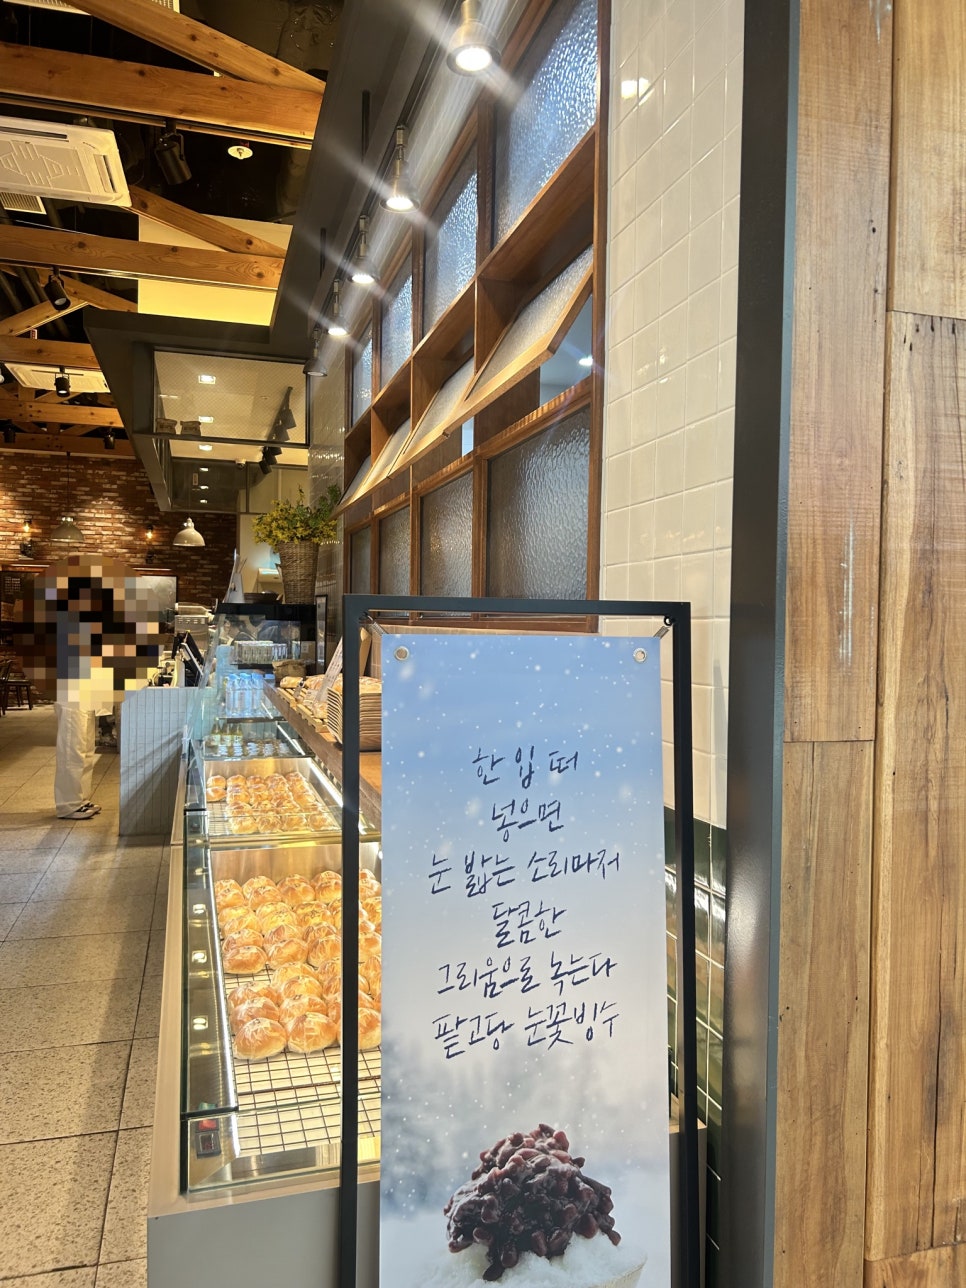 한 입 떠
넣으면
눈 밟는 소리마저
달콤한
그리움으로 녹는다
팥고당 눈꽃빙수